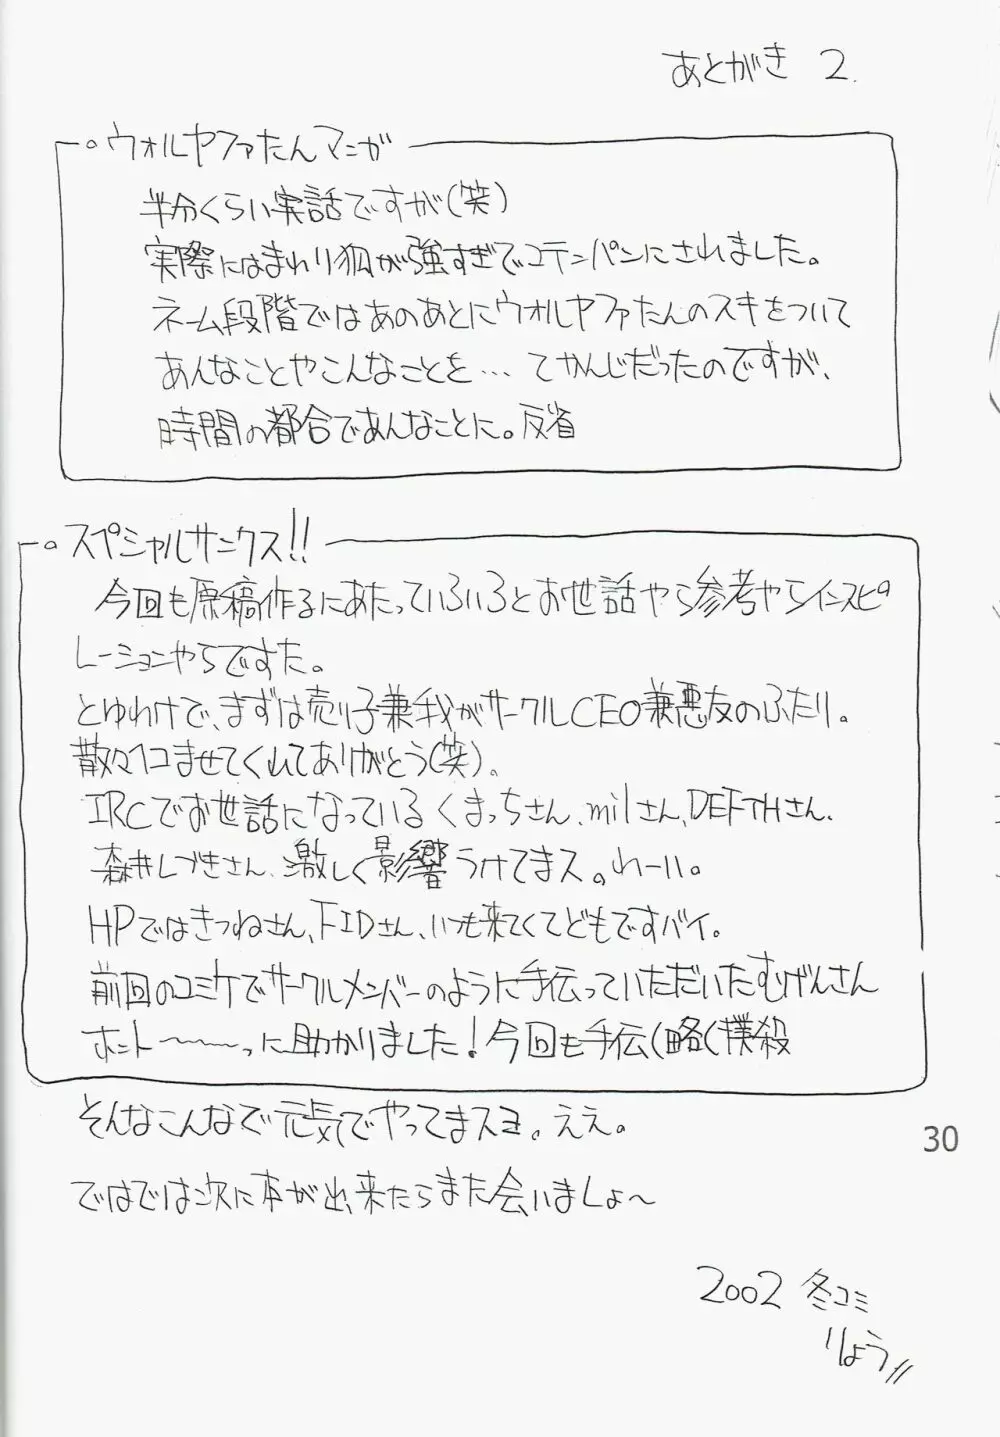 あとがき 2.
。ウォルヤファたんマンガ
半分くらい実話ですが(笑)
実際にはまわり狐が強すぎでコテンパンにされました。
ネーム段階ではあのあとにウォルヤファたんのスキをついて
あんなことやこんなことを… てかんじだったのですが、
時間の都合であんなことに。反省
。スペシャルサンクス!!
今回も原稿作るにあたっていろいろとお世話やら参考やらインスピ
レーションやらですた。
とゆわけで、まずは売り子兼我がサークルCEO兼悪友のふたり。
散々ヘコませてくれてありがとう(笑)。
IRCでお世話になっているくまっちさん、milさん、DEFTHさん、
森井しづきさん、激しく影響うけてまス。わーい。
HPではきつねさん、FIDさん、いつも来てくてどもですバイ。
前回のコミケでサークルメンバーのように手伝っていただいたむげんさん
ホント〜〜〜〜っに助かりました!今回も手伝(略(撲殺
そんなこんなで元気でやってまスヨ。ええ。
ではでは次に本が出来たらまた会いましょ〜
30
2002 冬コミ
りょう//